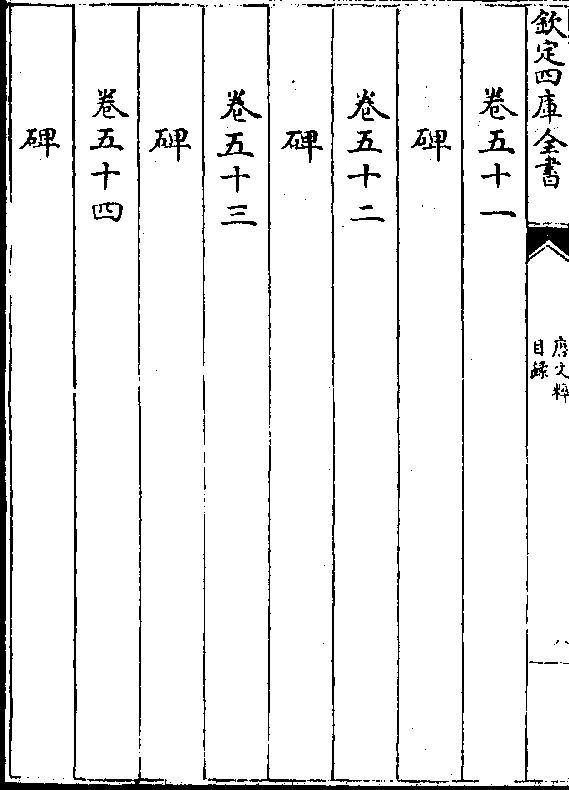 欽定四庫全書
唐文粹
目錄
八
卷五十一
碑
卷五十二
碑
卷五十三
碑
卷五十四
碑